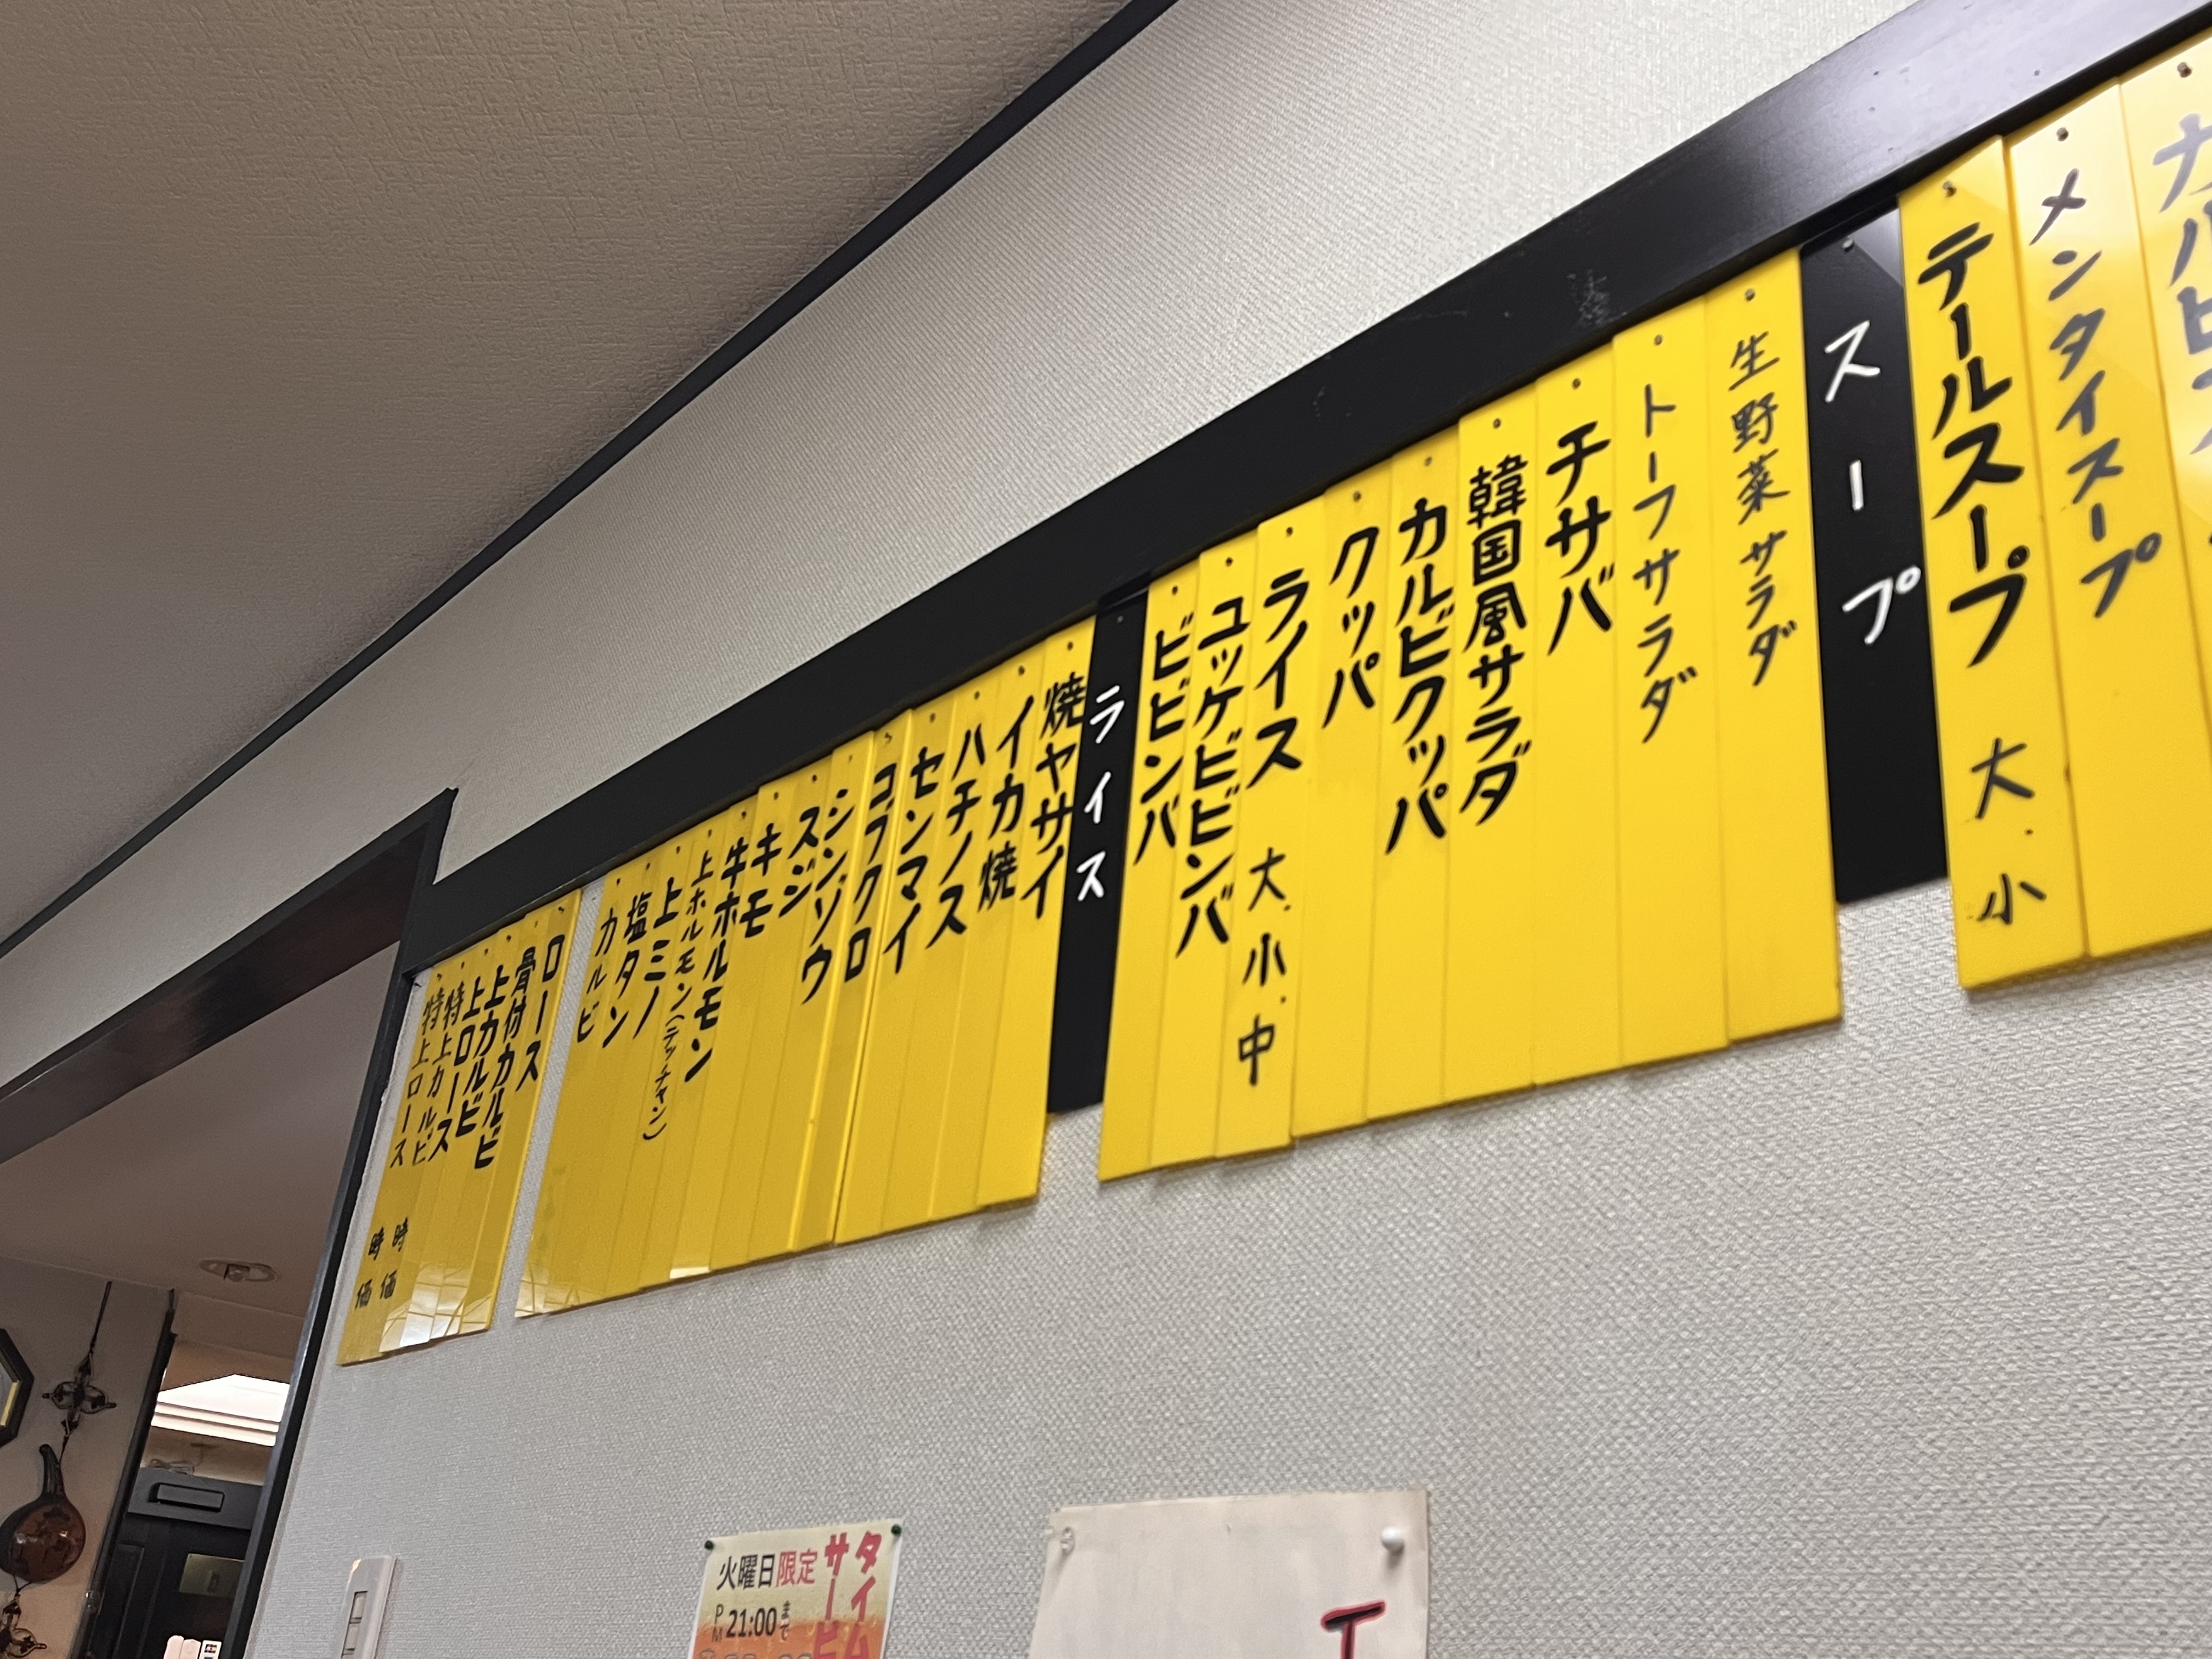 カルビ
メンタイスープ
テールスープ 大.小
スープ
生野菜サラダ
トーフサラダ
チサバ
韓国風サラダ
カルビクッパ
クッパ
ライス 大.小.中
ユッケビビンバ
ビビンバ
ライス
焼ヤサイ
イカ焼
ハチノス
センマイ
コブクロ
シンゾウ
スジ
キモ
牛ホルモン
上ホルモン(テッチャン)
上ミノ
塩タン
カルビ
ロース
骨付カルビ
上カルビ
上ロース
特上カルビ 時価
特上ロース 時価
タイム
サービ
火曜日限定
PM 21:00まで